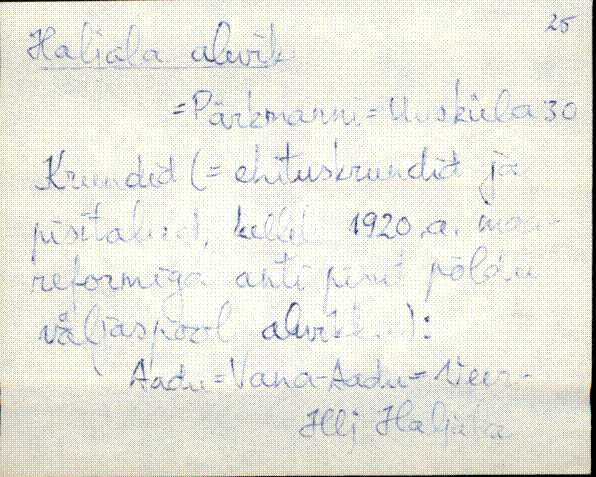 25
Haljala alevik
=Pärkmanni=Uusküla 30
Krundid (= ehituskrundid ja
pisitalud, kellel 1920.a. maa-
reformiga anti pisut põldu
väljaspool alevikku):
Aadu=Vana-Aadu=
Hlj Haljala